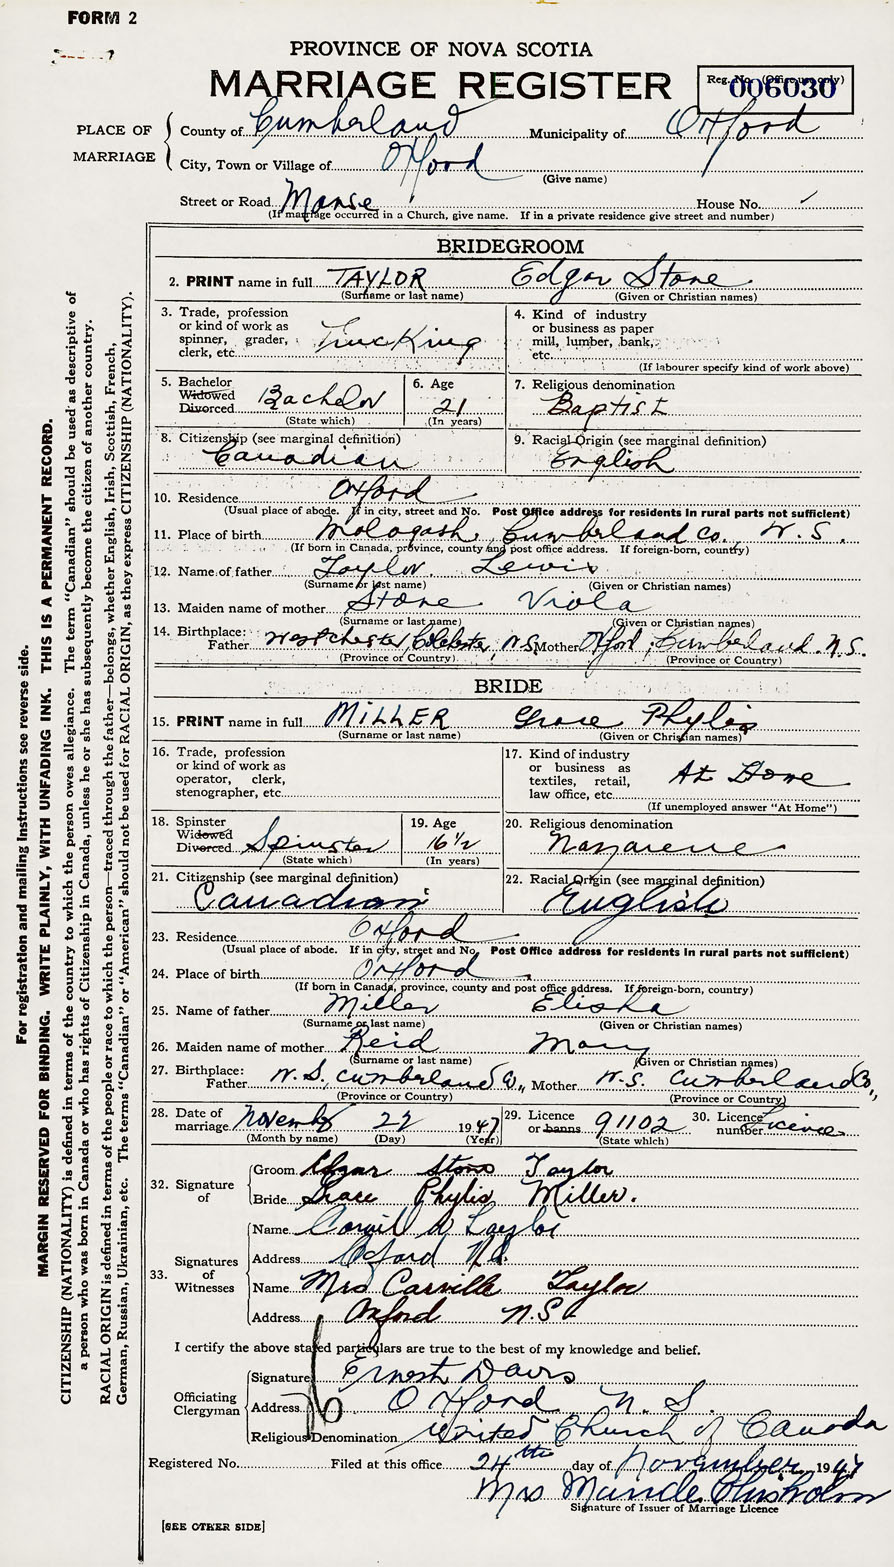 FORM 2
PROVINCE OF NOVA SCOTIA
MARRIAGE REGISTER
Reg. No. (Office use only)
006030
PLACE OF MARRIAGE
County of Cumberland Municipality of Oxford
City, Town or Village of Oxford
(Give name)
Street or Road Manse House No.
(If marriage occurred in a Church, give name. If in a private residence give street and number)
BRIDEGROOM
2. PRINT name in full TAYLOR Edgar Stone
(Surname or last name) (Given or Christian names)
3. Trade, profession or kind of work as spinner, grader, clerk, etc. Trucking
4. Kind of industry or business as paper mill, lumber, bank, etc.
(If labourer specify kind of work above)
5. Bachelor Widowed Divorced Bachelor
(State which)
6. Age 21
(In years)
7. Religious denomination Baptist
8. Citizenship (see marginal definition) Canadian
9. Racial Origin (see marginal definition) English
10. Residence Oxford
(Usual place of abode. If in city, street and No. Post Office address for residents in rural parts not sufficient)
11. Place of birth Malagash, Cumberland Co., N.S.
(If born in Canada, province, county and post office address. If foreign-born, country)
12. Name of father Taylor Lewis
(Surname or last name) (Given or Christian names)
13. Maiden name of mother Stone Viola
(Surname or last name) (Given or Christian names)
14. Birthplace: Father Westchester, Colchester, N.S. Mother Oxford, Cumberland. N.S.
(Province or Country) (Province or Country)
BRIDE
15. PRINT name in full MILLER Grace Phylis
(Surname or last name) (Given or Christian names)
16. Trade, profession or kind of work as operator, clerk, stenographer, etc.
17. Kind of industry or business as textiles, retail, law office, etc. At Home
(If unemployed answer "At Home")
18. Spinster Widowed Divorced Spinster
(State which)
19. Age 16 1/2
(In years)
20. Religious denomination Nazarene
21. Citizenship (see marginal definition) Canadian
22. Racial Origin (see marginal definition) English
23. Residence Oxford
(Usual place of abode. If in city, street and No. Post Office address for residents in rural parts not sufficient)
24. Place of birth Oxford
(If born in Canada, province, county and post office address. If foreign-born, country)
25. Name of father Miller Elisha
(Surname or last name) (Given or Christian names)
26. Maiden name of mother Reid Mary
(Surname or last name) (Given or Christian names)
27. Birthplace: Father N.S. Cumberland Co., Mother N.S. Cumberland Co.,
(Province or Country) (Province or Country)
28. Date of marriage 22 1947
(Month by name) (Day) (Year)
29. Licence or banns 91102
(State which)
30. Licence number Licence
32. Signature of
Groom Edgar Stone Taylor
Bride Grace Phylis Miller.
33. Signatures of Witnesses
Name Taylor
Address Oxford N.S.
Name Mrs Carville Taylor
Address Oxford N.S.
I certify the above stated particulars are true to the best of my knowledge and belief.
Officiating Clergyman
Signature Ernest Davis
Address Oxford N.S.
Religious Denomination United Church of Canada
Registered No. Filed at this office 24th day of November 1947
Mrs Maude Chisholm
Signature of Issuer of Marriage Licence
[SEE OTHER SIDE]
For registration and mailing instructions see reverse side.
MARGIN RESERVED FOR BINDING. WRITE PLAINLY, WITH UNFADING INK. THIS IS A PERMANENT RECORD.
CITIZENSHIP (NATIONALITY) is defined in terms of the country to which the person owes allegiance. The term "Canadian" should be used as descriptive of
a person who was born in Canada or who has rights of Citizenship in Canada, unless he or she has subsequently become the citizen of another country.
RACIAL ORIGIN is defined in terms of the people or race to which the person—traced through the father—belongs, whether English, Irish, Scottish, French,
German, Russian, Ukrainian, etc. The terms "Canadian" or "American" should not be used for RACIAL ORIGIN, as they express CITIZENSHIP (NATIONALITY).